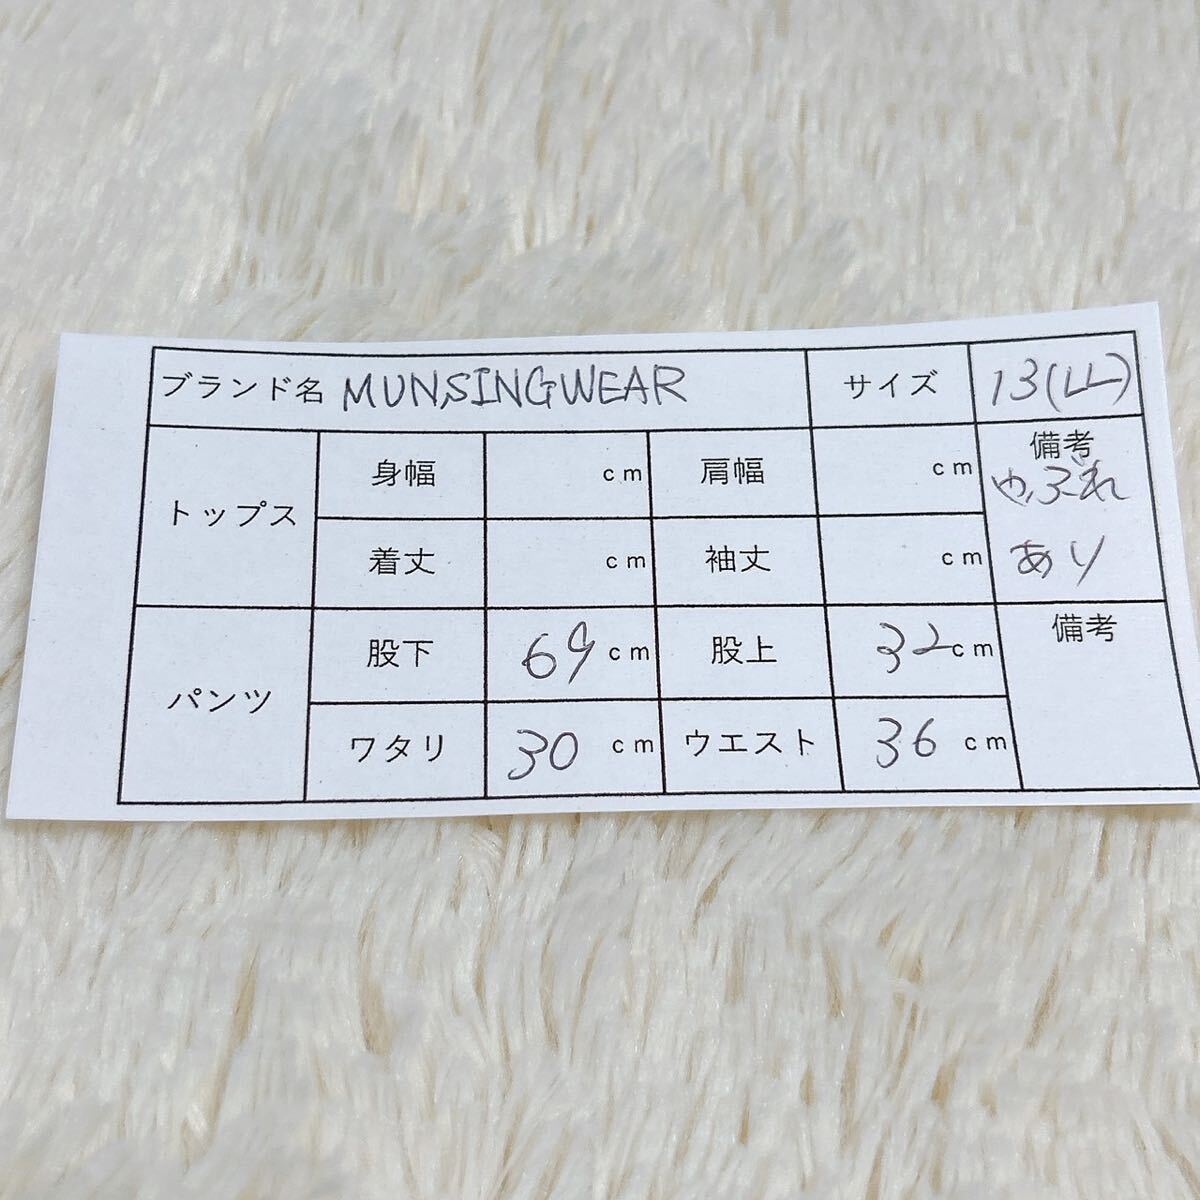 ブランド名 MUNSINGWEAR サイズ 13(LL)
トップス 身幅 cm 肩幅 cm 備考
やぶれ
着丈 cm 袖丈 cm あり
パンツ 股下 69 cm 股上 32 cm 備考
ワタリ 30 cm ウエスト 36 cm